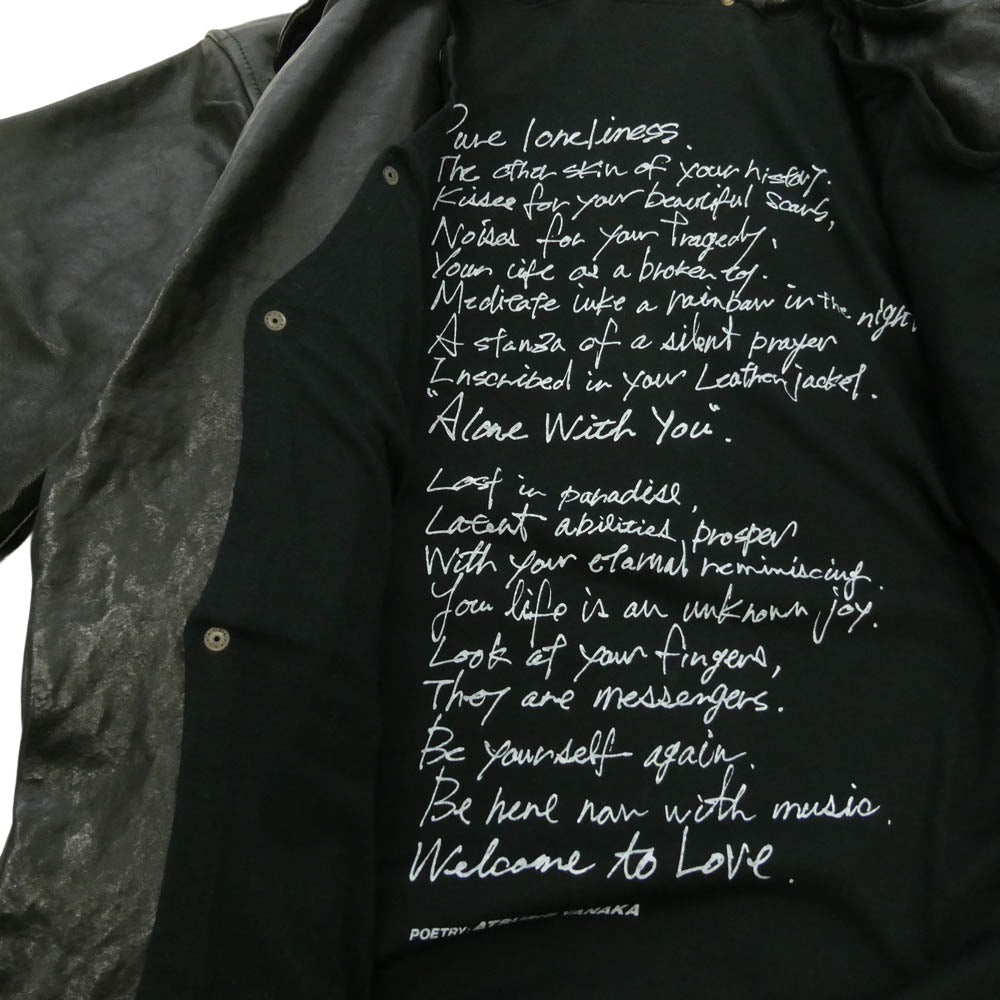 Pure loneliness.
The other skin of your history.
Kisses for your beautiful scars,
Noises for your Tragedy,
Your life as a broken toy.
Meditate like a rainbow in the night
A stanza of a silent prayer
Inscribed in your Leather jacket.
"Alone With You".
Lost in paradise,
Latent abilities prosper
With your eternal reminiscing.
Your life is an unknown joy.
Look at your fingers,
They are messengers.
Be yourself again.
Be here now with music.
Welcome to Love.
POETRY: TANAKA